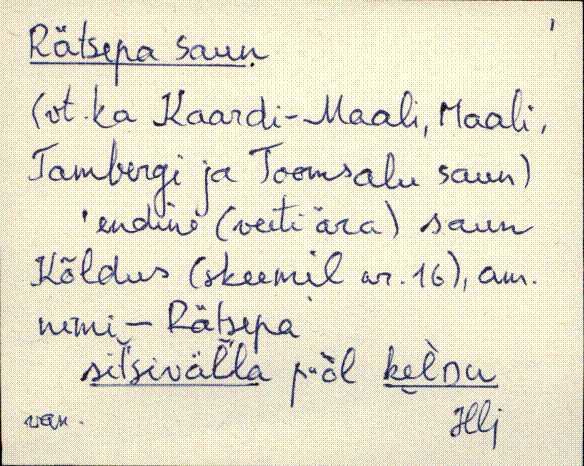 Rätsepa saun
(vt. ka Kaardi-Maali, Maali,
Tambergi ja Toomsalu saun)
'endine (veeti ära) saun
Kõldus (skeemil nr. 16), am.
nimi – Rätsepa
sitsivälla p·ò̀l kèlDu
van. Hlj